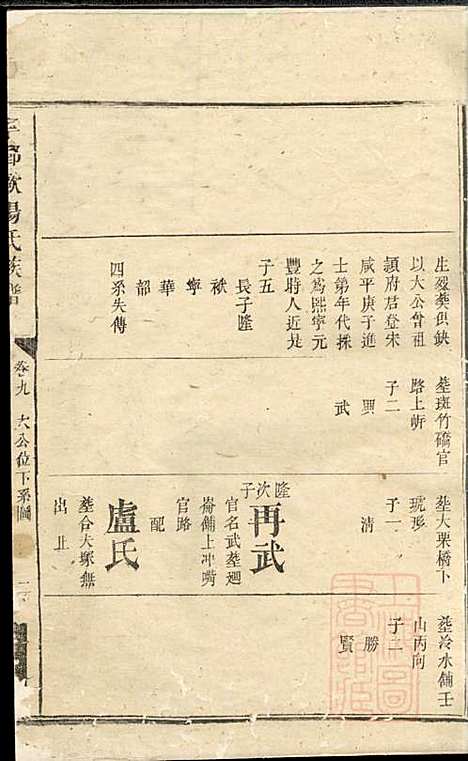 生歿葬俱缺
以大公曾祖
頴府君登宋
咸平庚子進
士第年代採
之爲熙寧元
豐時人近是
子五
長子隆
袱
寧
華
韶
四系失傳
塟斑竹礄官
路上㘭
子二
興
武
塟大栗橋下
琥形
子一
清
隆次子
再武
官名武塟廻
崙鋪上冲嘴
官路
配
盧氏
塟合大塚無
出止
塟冷水鋪壬
山丙向
子二
勝
賢
歐陽氏族譜
卷九 大公位下系圖 二